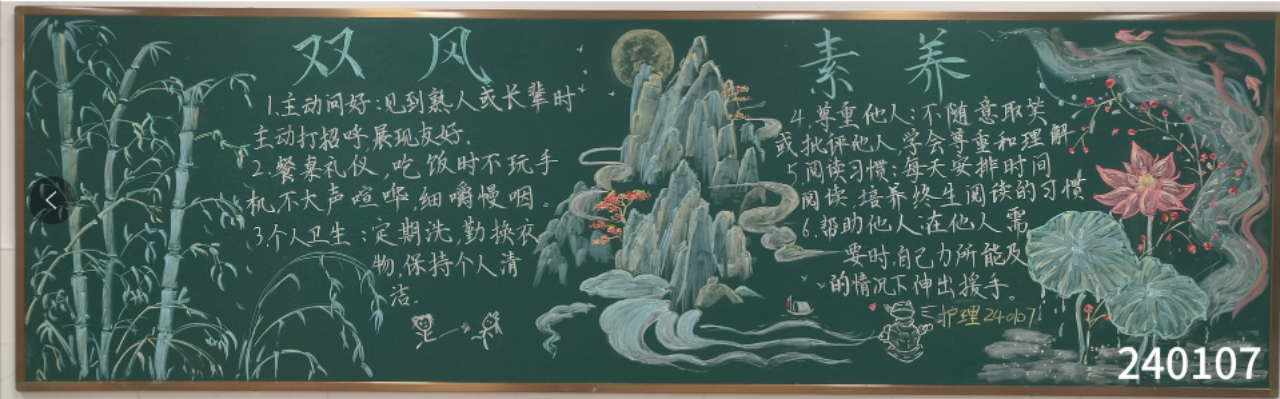 双风
1.主动问好:见到熟人或长辈时
主动打招呼,展现友好.
2.餐桌礼仪,吃饭时不玩手
机,不大声喧哗,细嚼慢咽。
3个人卫生:定期洗,勤换衣
物,保持个人清
洁.
素养
4.尊重他人:不随意取笑
或批评他人,学会尊重和理解
5阅读习惯:每天安排时间
阅读,培养终生阅读的习惯
6.帮助他人:在他人需
要时,自己力所能及
的情况下伸出援手。
护理240107
240107